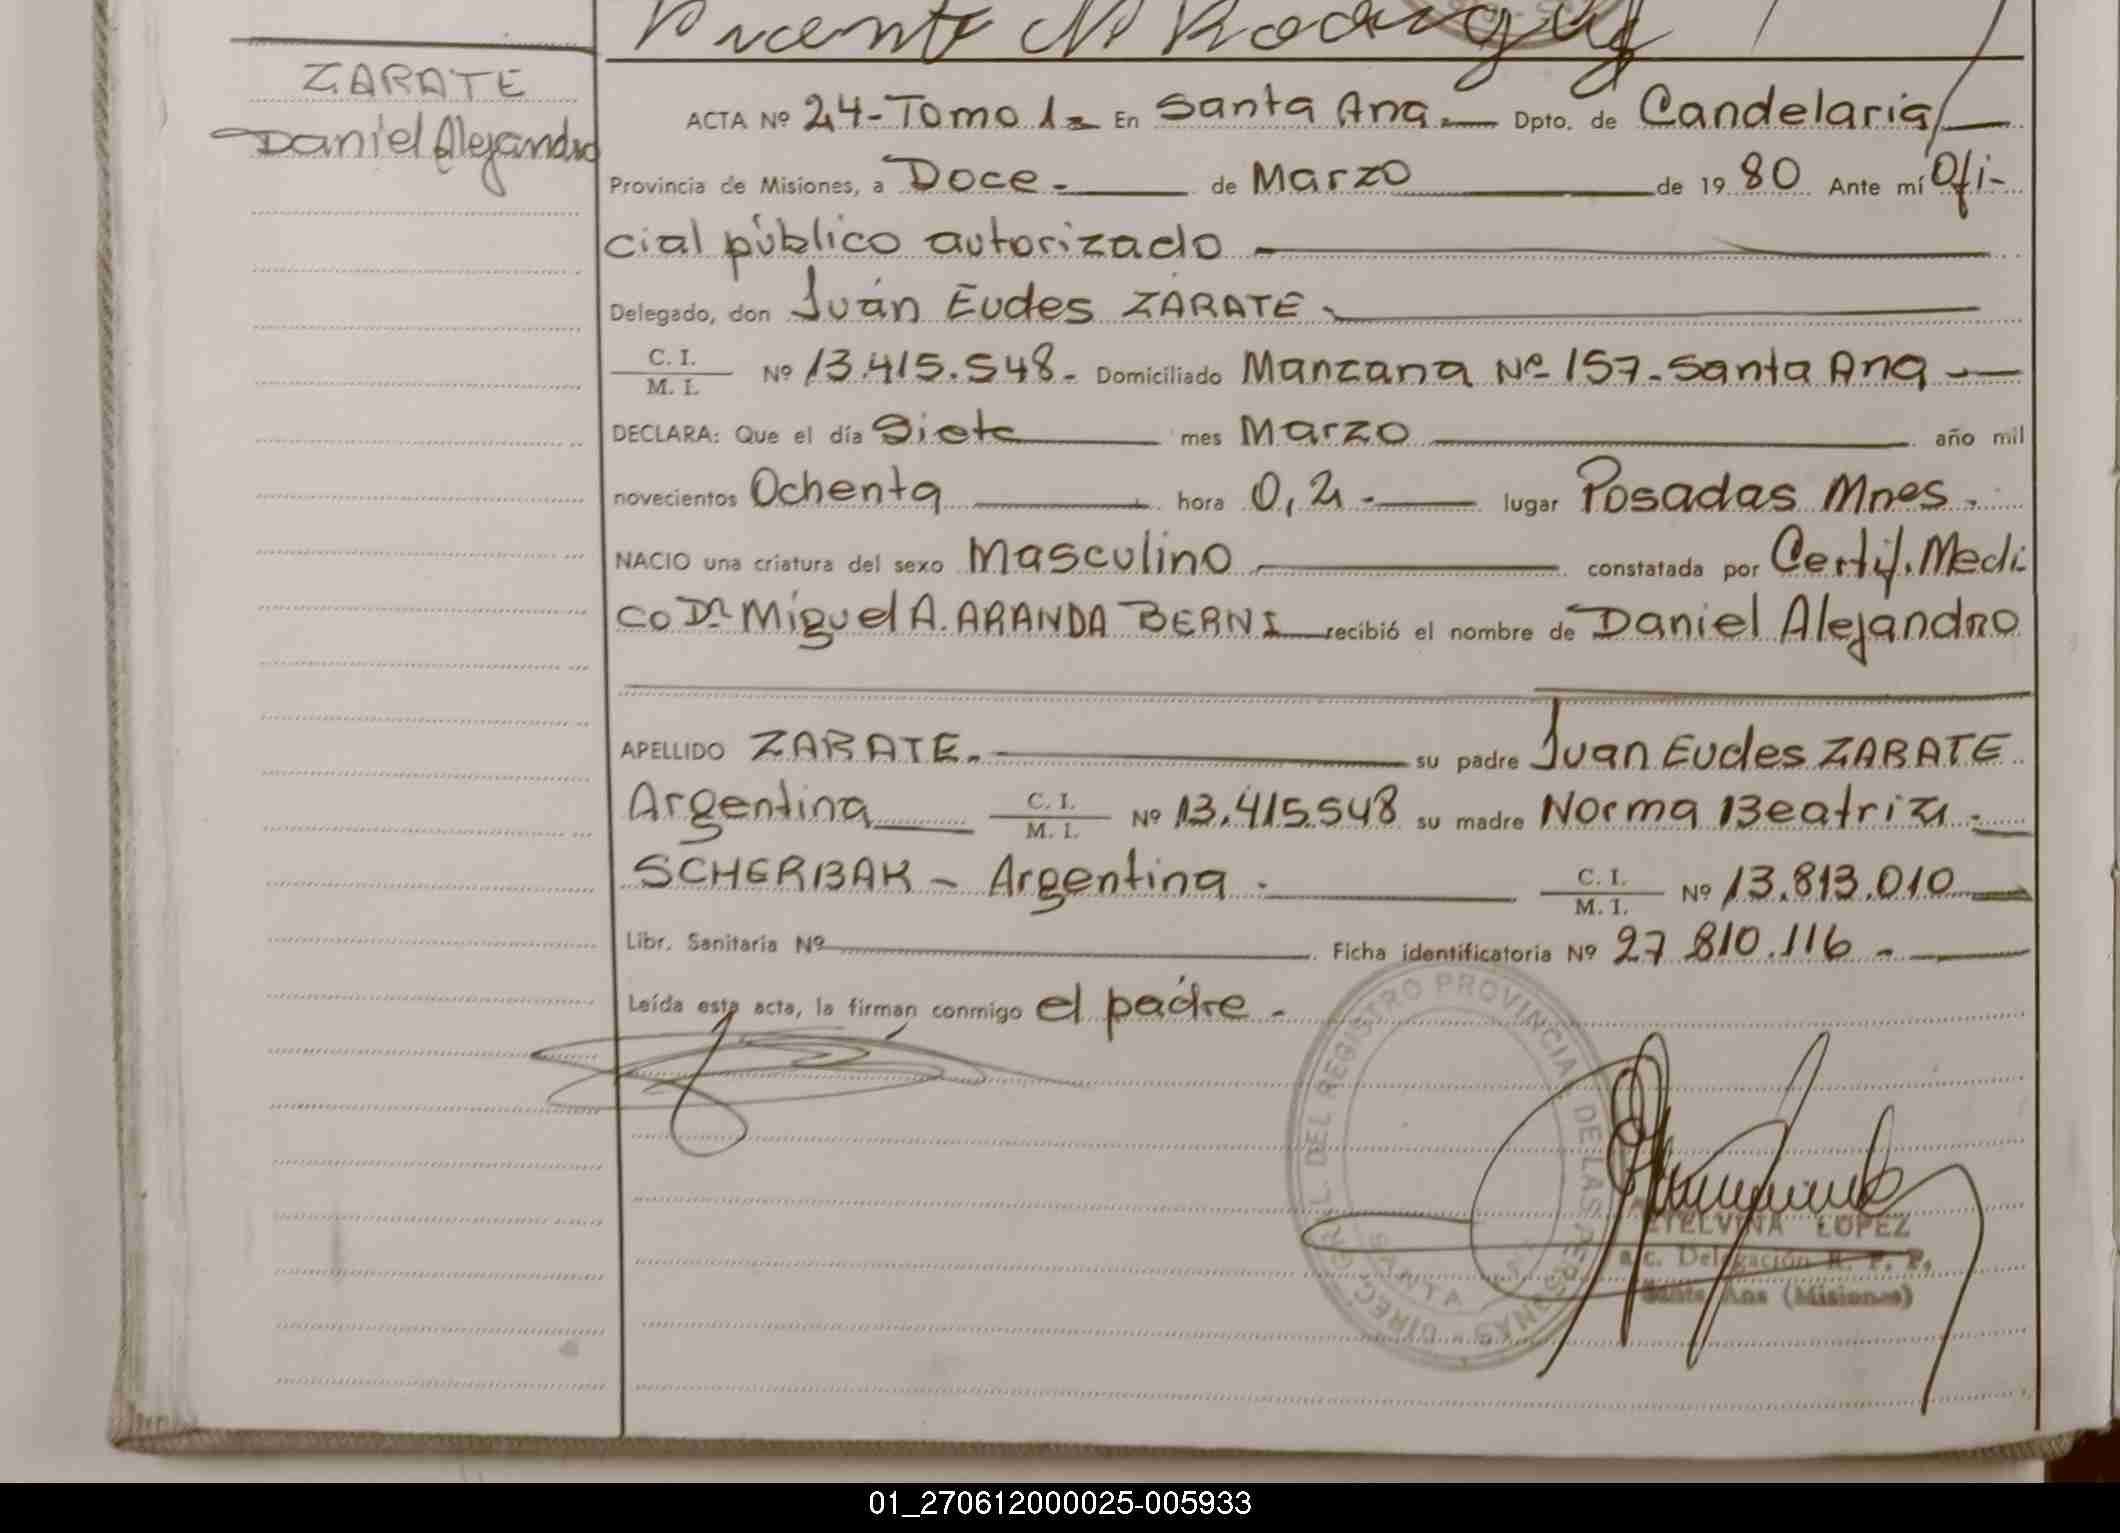 Vicente M Rodriguez
ZARATE
Daniel Alejandro
ACTA Nº 24-Tomo 1- En Santa Ana.- Dpto. de Candelaria
Provincia de Misiones, a Doce.- de Marzo de 19 80 Ante mí Ofi-
cial público autorizado -
Delegado, don Juán Eudes ZARATE.
C. I. / M. I. Nº 13.415.548- Domiciliado Manzana Nº 157-Santa Ana -
DECLARA: Que el día Siete mes Marzo año mil
novecientos Ochenta hora 0,2 .- lugar Posadas Mnes.
NACIO una criatura del sexo Masculino constatada por Certif. Medi
co Dr Miguel A. ARANDA BERNI recibió el nombre de Daniel Alejandro
APELLIDO ZARATE.- su padre Juan Eudes ZARATE
Argentina C. I. / M. I. Nº 13.415.548 su madre Norma Beatriz.-
SCHERBAK - Argentina.- C. I. / M. I. Nº 13.813.010
Libr. Sanitaria Nº Ficha identificatoria Nº 27 810.116 -
Leída esta acta, la firman conmigo el padre -
DIREC. GRAL. DEL REGISTRO PROVINCIAL DE LAS PERSONAS
SANTA ANA
ETELVINA LOPEZ
a/c. Delegación R. P. P.
Santa Ana (Misiones)
01_270612000025-005933